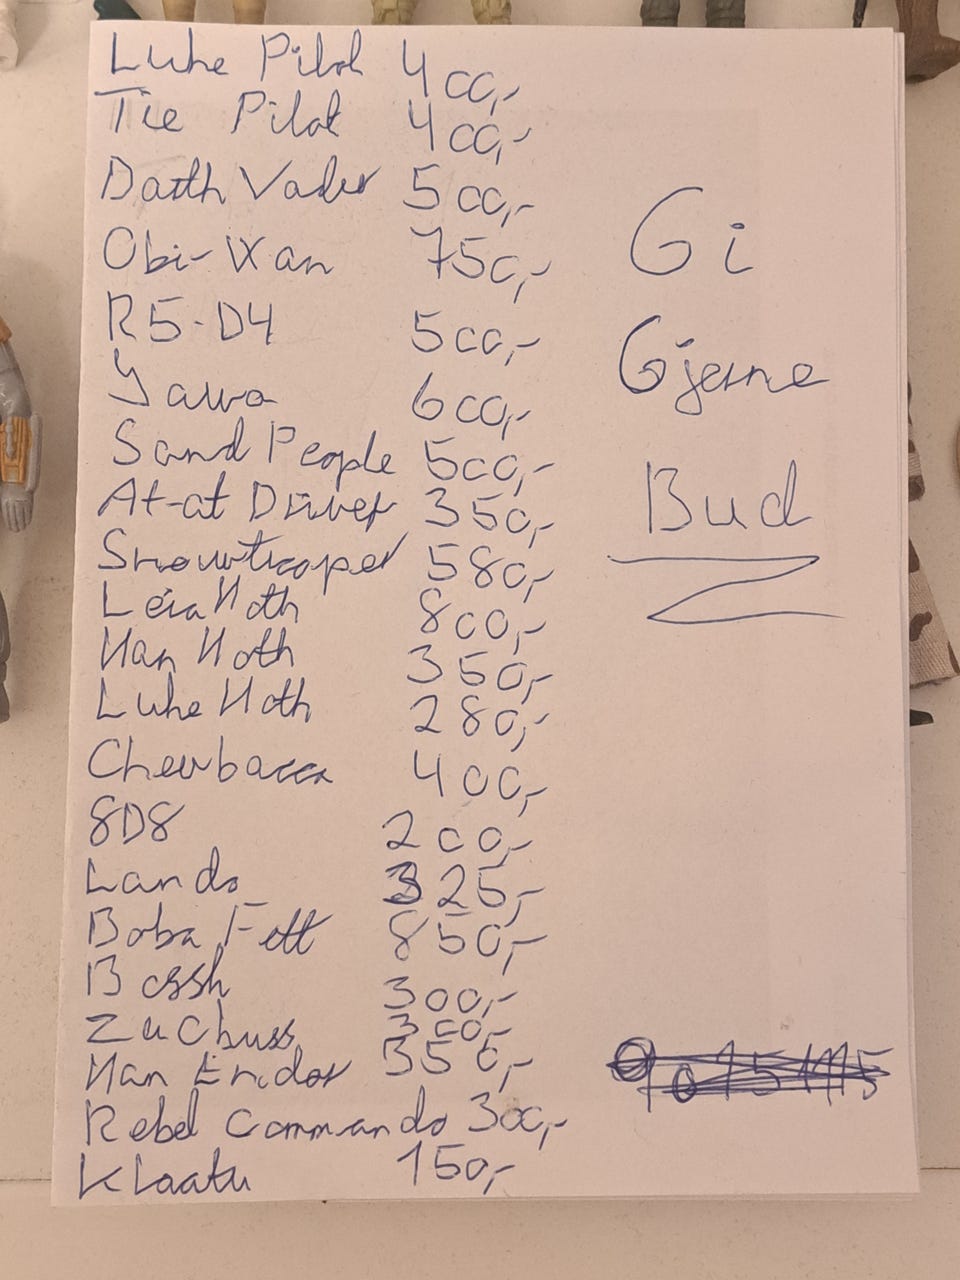 Luke Pilot 400,-
Tie Pilot 400,-
Darth Vader 500,-
Obi-Wan 750,-
R5-D4 500,-
Jawa 600,-
Sand People 500,-
At-at Driver 350,-
Snowtrooper 580,-
Leia Hoth 800,-
Han Hoth 350,-
Luke Hoth 280,-
Chewbacca 400,-
8D8 200,-
Lando 325,-
Boba Fett 850,-
Bossk 300,-
Zuckuss 300,-
Han Endor 350,-
Rebel Commando 300,-
Klaatu 150,-
Gi
Gjerne
Bud